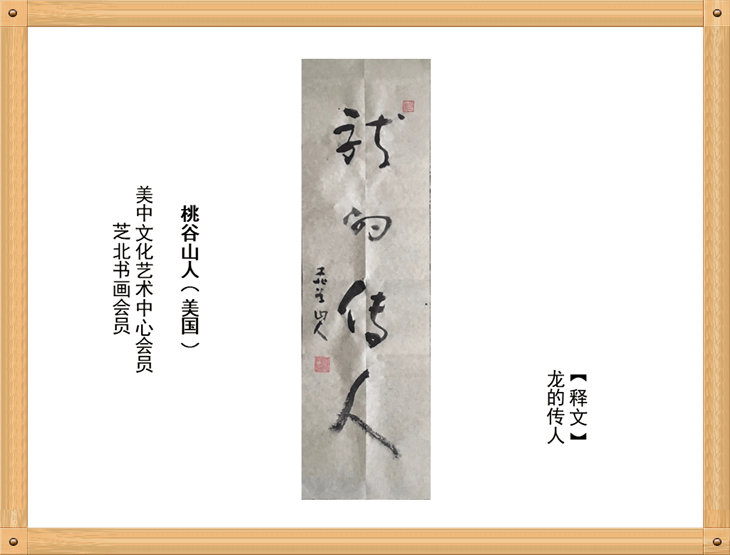 【释文】
龙的传人
龙的传人
桃谷山人
桃谷山人（美国）
美中文化艺术中心会员
芝北书画会员